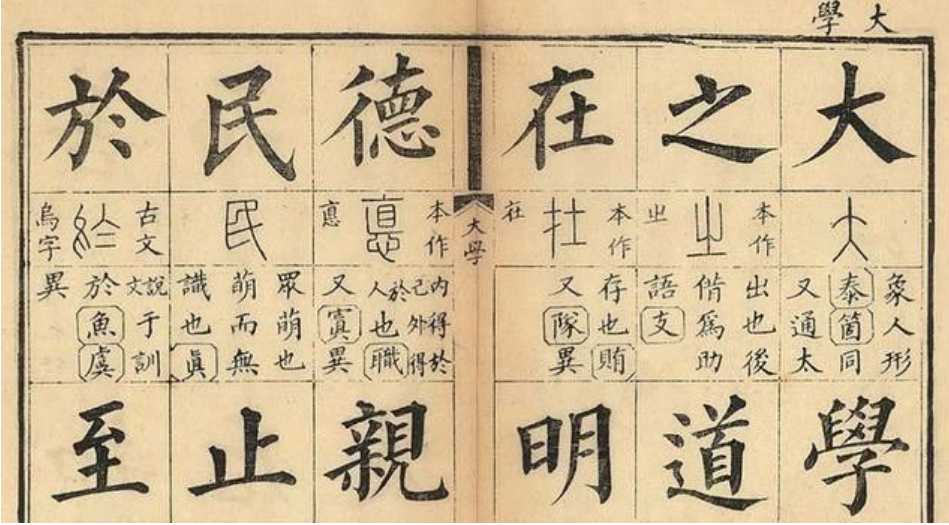 大學
大
大
象人形
泰箇同
又通太
學
之
本作
㞢
㞢
出也後
偕爲助
語支
道
在
本作
在
在
存也賄
又隊異
明
大學
德
本作
悳
悳
内得於
己外得
於人也職
又寘異
親
民
民
眾萌也
萌而無
識也眞
止
於
古文
於
烏字
說文于訓
於魚虞
異
至